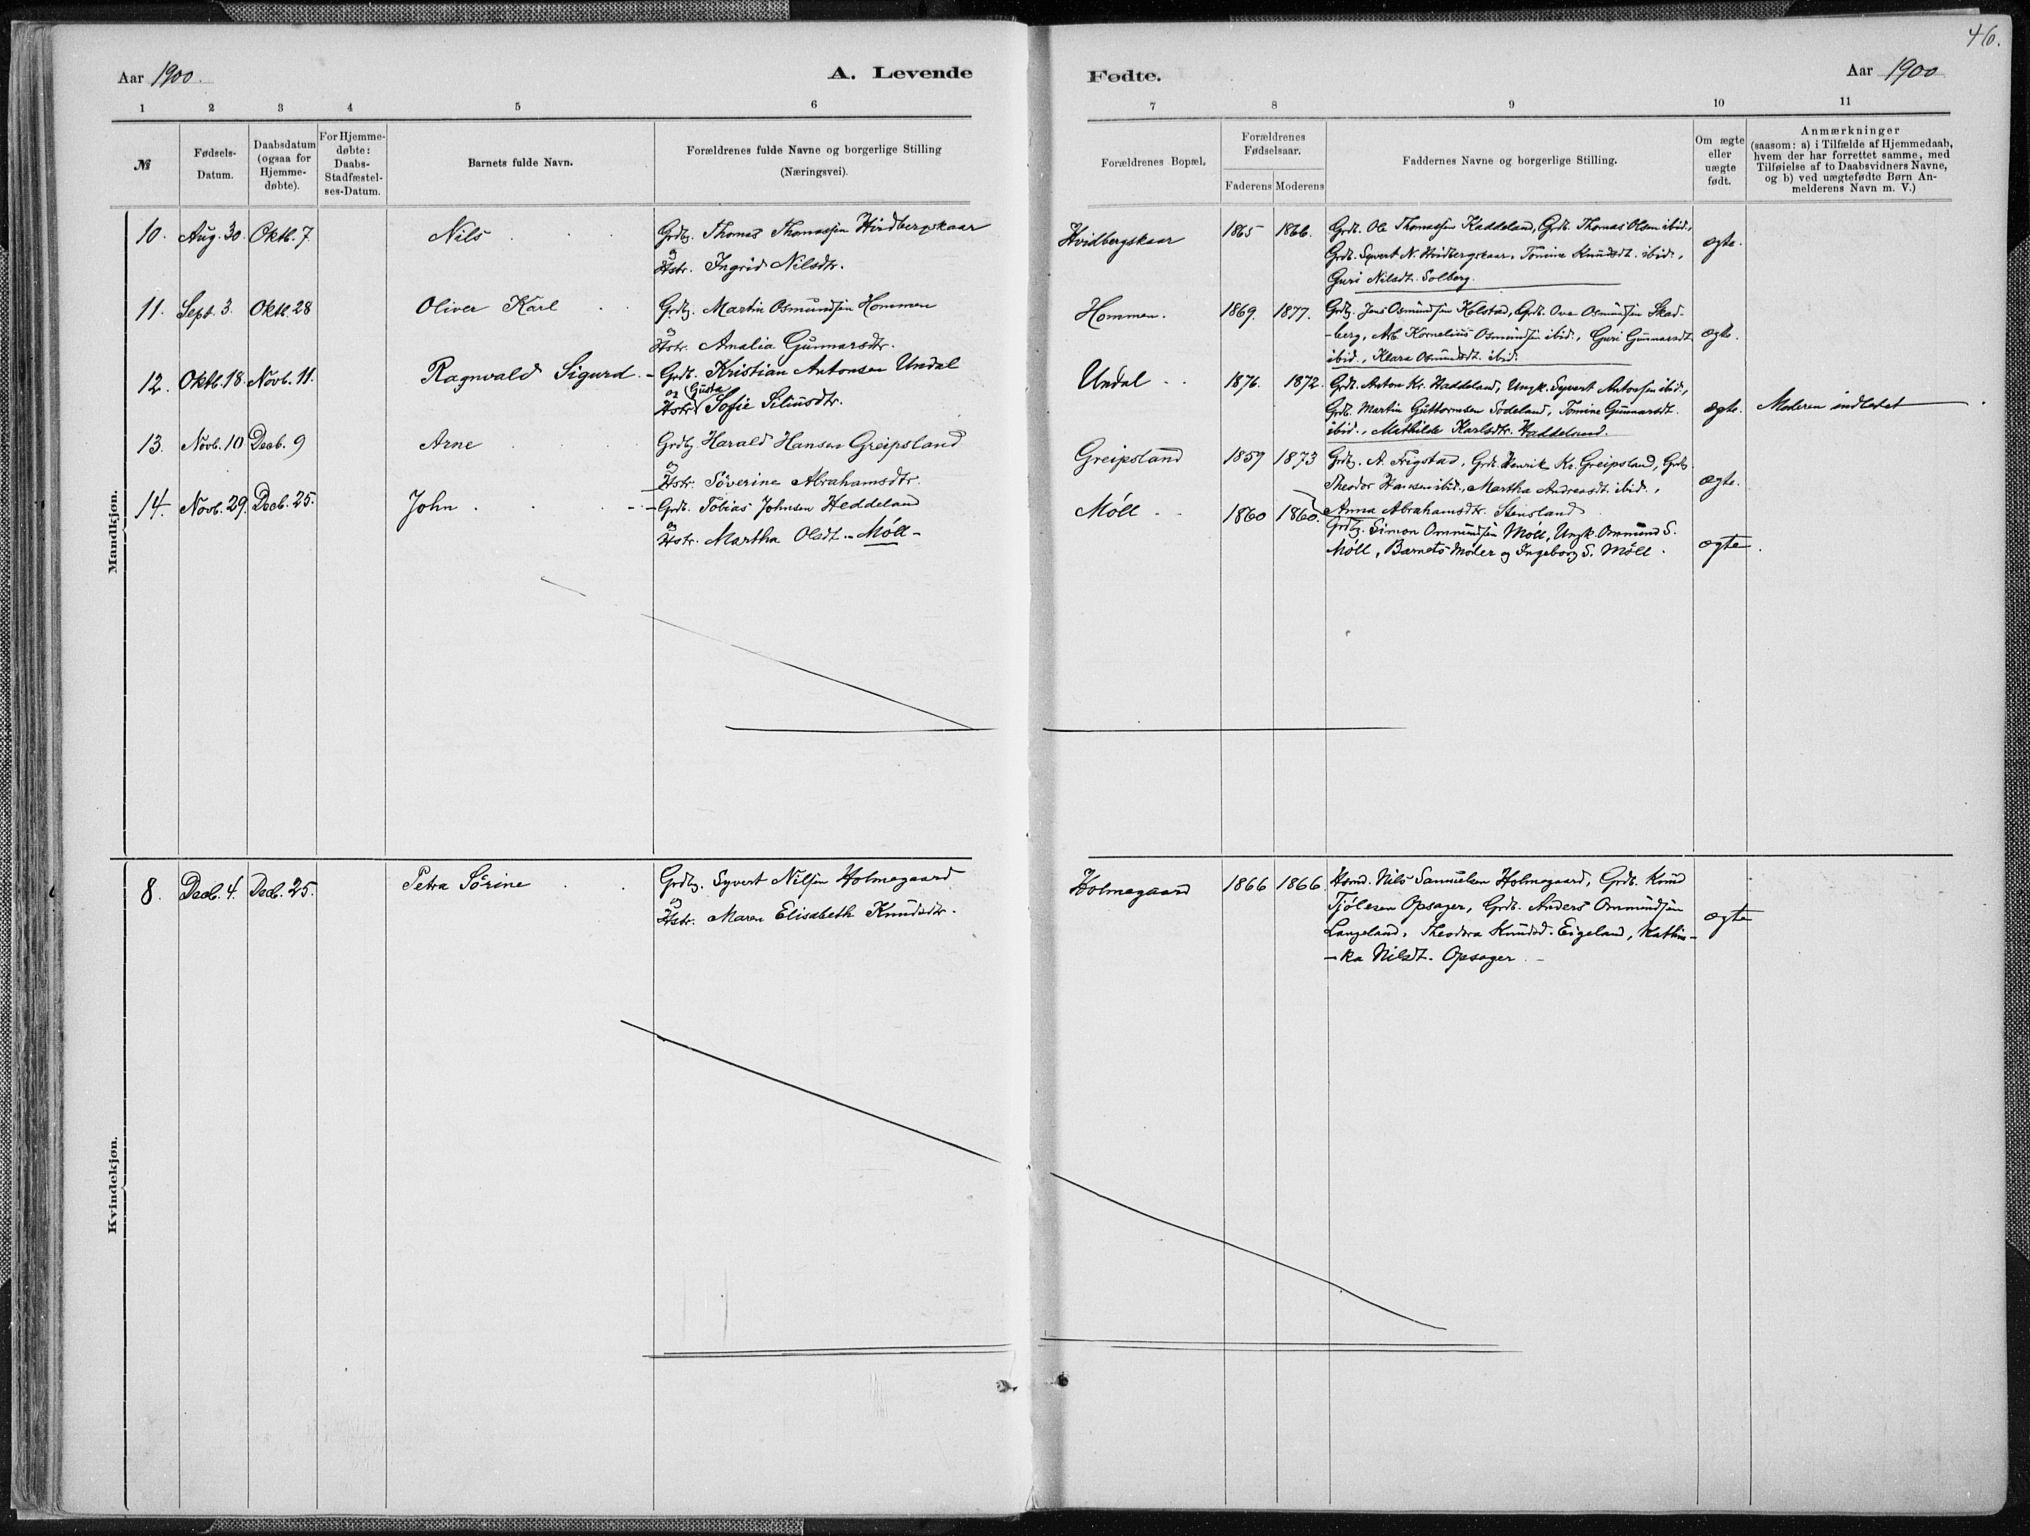 46.
Aar 1900.
A. Levende
Fødte.
Aar 1900
1 2 3 4 5 6 7 8 9 10 11
№
Fødsels-
Datum.
Daabsdatum
(ogsaa for
Hjemme-
døbte).
For Hjemme-
døbte:
Daabs-
Stadfæstel-
ses-Datum.
Barnets fulde Navn.
Forældrenes fulde Navne og borgerlige Stilling
(Næringsvei).
Forældrenes Bopæl.
Forældrenes
Fødselsaar.
Faderens Moderens
Faddernes Navne og borgerlige Stilling.
Om ægte
eller
uægte
født.
Anmærkninger
(saasom: a) i Tilfælde af Hjemmedaab,
hvem der har forrettet samme, med
Tilføielse af to Daabsvidners Navne,
og b) ved uægtefødte Børn An-
melderens Navn m. V.)
Mandkjøn.
10. Aug. 30. Oktb. 7.
Nils
Grdb. Thomas Thomassen Hvidbergskaar
og
Hstr. Ingrid Nilsdtr.
Hvidbergskaar
1865 1866.
Grdb. Ole Thomassen Haddeland, Grdb. Thomas Olsen ibid.,
Grdb. Syvert N. Hvidbergskaar, Tomine Knudsdt. ibid.,
Guri Nilsdt. Solberg.
ægte.
11. Sept. 3. Oktb. 28
Oliver Karl
Grdb. Martin Osmundsen Hommen
og
Hstr. Amalia Gunnarsdtr.
Hommen.
1869. 1877.
Grdb. Jens Osmundsen Kolstad, Grdb. Ove Osmundsen Skad-
-berg, Arb. Kornelius Osmundsen ibid., Guri Gunnarsdt.
ibid., Klara Osmundsdt. ibid.
ægte.
12. Oktb. 18. Novb. 11.
Ragnvald Sigurd.
Grdb. Kristian Antonsen Undal
og Gusta
Hstr. Sofie Seliusdtr.
Undal
1876. 1872.
Grdb. Anton Kr. Haddeland, Ungk. Syvert Antonsen ibid.,
Grdb. Martin Guttormsen Sodeland, Tomine Gunnarsdt.
ibid., Mathilde Karlsdtr. Haddeland.
ægte.
Moderen indledet
13. Novb. 10 Decb. 9
Arne
Grdb. Harald Hansen Greipsland
og
Hstr. Søverine Abrahamsdtr.
Greipsland
1859 1873
Grdb. A. Frigstad, Grdb. Henrik Kr. Greipsland, Grdb.
Theodor Hansen ibid., Martha Andreasdt. ibid.,
Anna Abrahamsdtr. Stensland
ægte.
14. Novb. 29. Decb. 25.
John
Grdb. Tobias Johnsen Heddeland
og
Hstr. Martha Olsdt. - Møll -
Møll
1860 1860.
Grdb. Simon Ommundsen Møll, Ungk. Ommund S.
Møll, Barnets Moder og Ingeborg S. Møll.
ægte.
Kvindekjøn.
8. Decb. 4. Decb. 25.
Petra Sørine
Grdb. Syvert Nilsen Holmegaard
og
Hstr. Maren Elisabeth Knudsdtr.
Holmegaard
1866 1866.
Hsmd. Nils Samuelsen Holmegaard, Grdb. Knud
Tjølesen Opsager, Grdb. Anders Ommundsen
Langeland, Theodora Knudsd. Eigeland, Kathin-
-ka Nilsdt. Opsager.
ægte